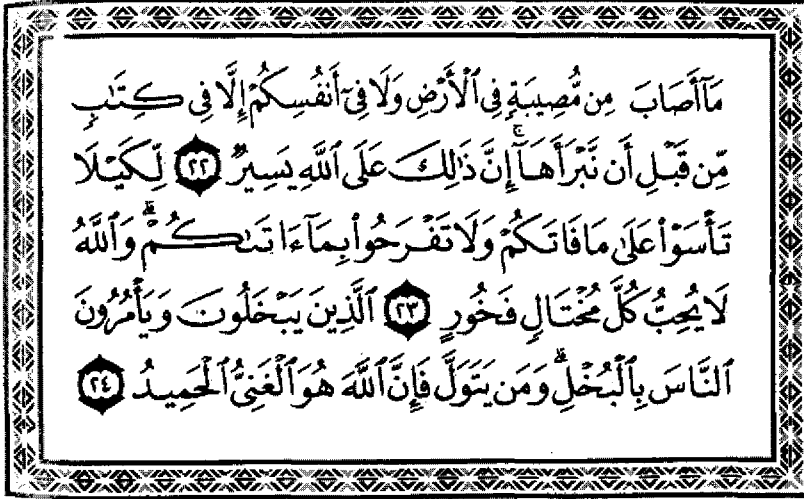 مَآ أَصَابَ مِن مُّصِيبَةٍ فِي ٱلۡأَرۡضِ وَلَا فِيٓ أَنفُسِكُمۡ إِلَّا فِي كِتَٰبٖ
مِّن قَبۡلِ أَن نَّبۡرَأَهَآۚ إِنَّ ذَٰلِكَ عَلَى ٱللَّهِ يَسِيرٞ ٢٢ لِّكَيۡلَا
تَأۡسَوۡاْ عَلَىٰ مَا فَاتَكُمۡ وَلَا تَفۡرَحُواْ بِمَآ ءَاتَىٰكُمۡۗ وَٱللَّهُ
لَا يُحِبُّ كُلَّ مُخۡتَالٖ فَخُورٍ ٢٣ ٱلَّذِينَ يَبۡخَلُونَ وَيَأۡمُرُونَ
ٱلنَّاسَ بِٱلۡبُخۡلِۗ وَمَن يَتَوَلَّ فَإِنَّ ٱللَّهَ هُوَ ٱلۡغَنِيُّ ٱلۡحَمِيدُ ٢٤